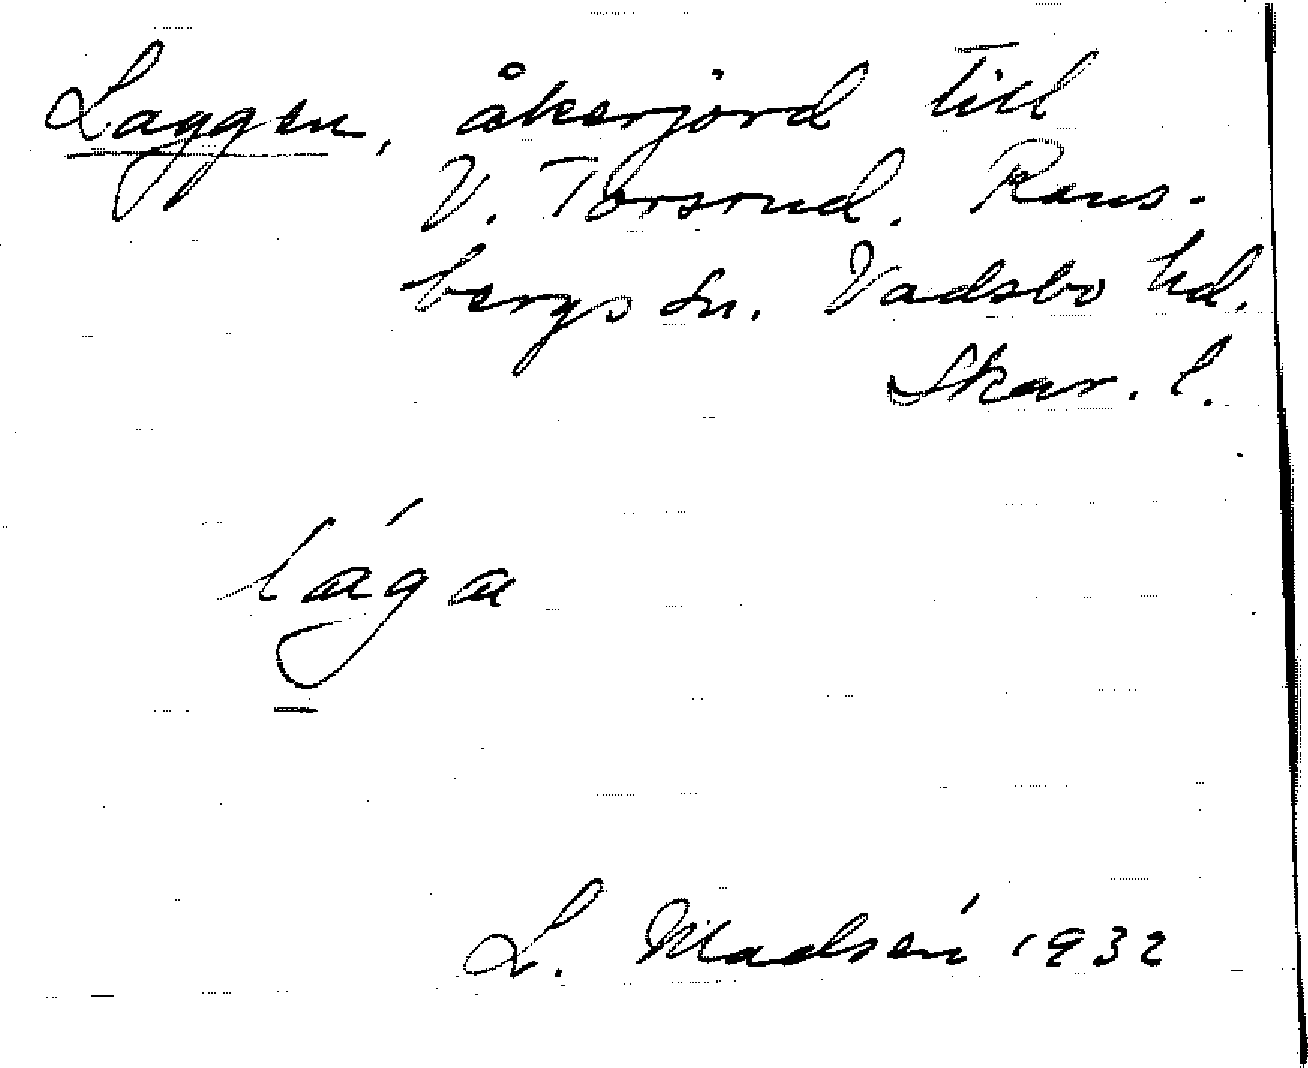 Laggen, åkerjord till
V. Torsrud. Rans-
bergs sn. Vadsbo hd.
Skar. l.
lága
L. Madsén 1932